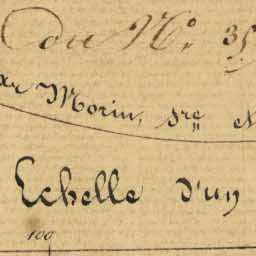 du N.º 35
Morin, sre et
Echelle d'un
100